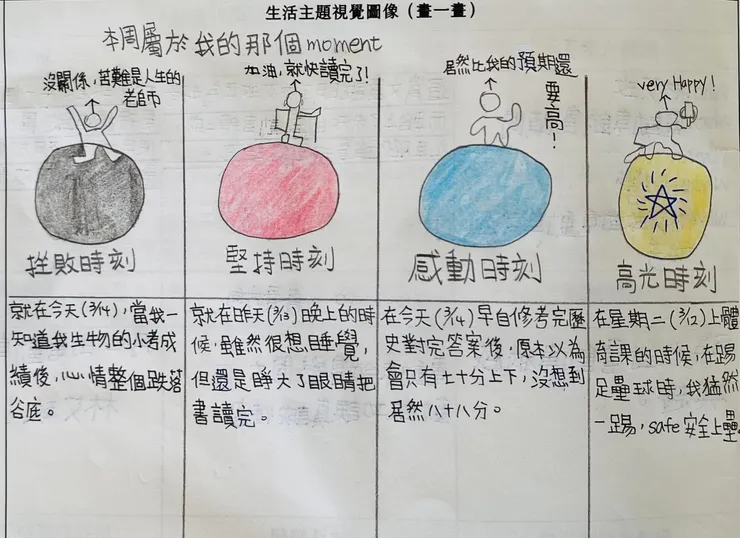 生活主題視覺圖像（畫一畫）
本周屬於我的那個moment
沒關係，苦難是人生的
老師
挫敗時刻
就在今天(3/14)，當我一
知道我生物的小考成
績後，心情整個跌落
谷底。
加油，就快讀完了!
堅持時刻
就在昨天(3/13)晚上的時
候，雖然很想睡覺，
但還是睜大了眼睛把
書讀完。
居然比我的預期還
要高!
感動時刻
在今天(3/14)早自修考完歷
史對完答案後，原本以為
會只有七十分上下，沒想到
居然八十八分。
very Happy!
高光時刻
在星期二(3/12)上體
育課的時候，在踢
足壘球時，我猛然
一踢，safe安全上壘。